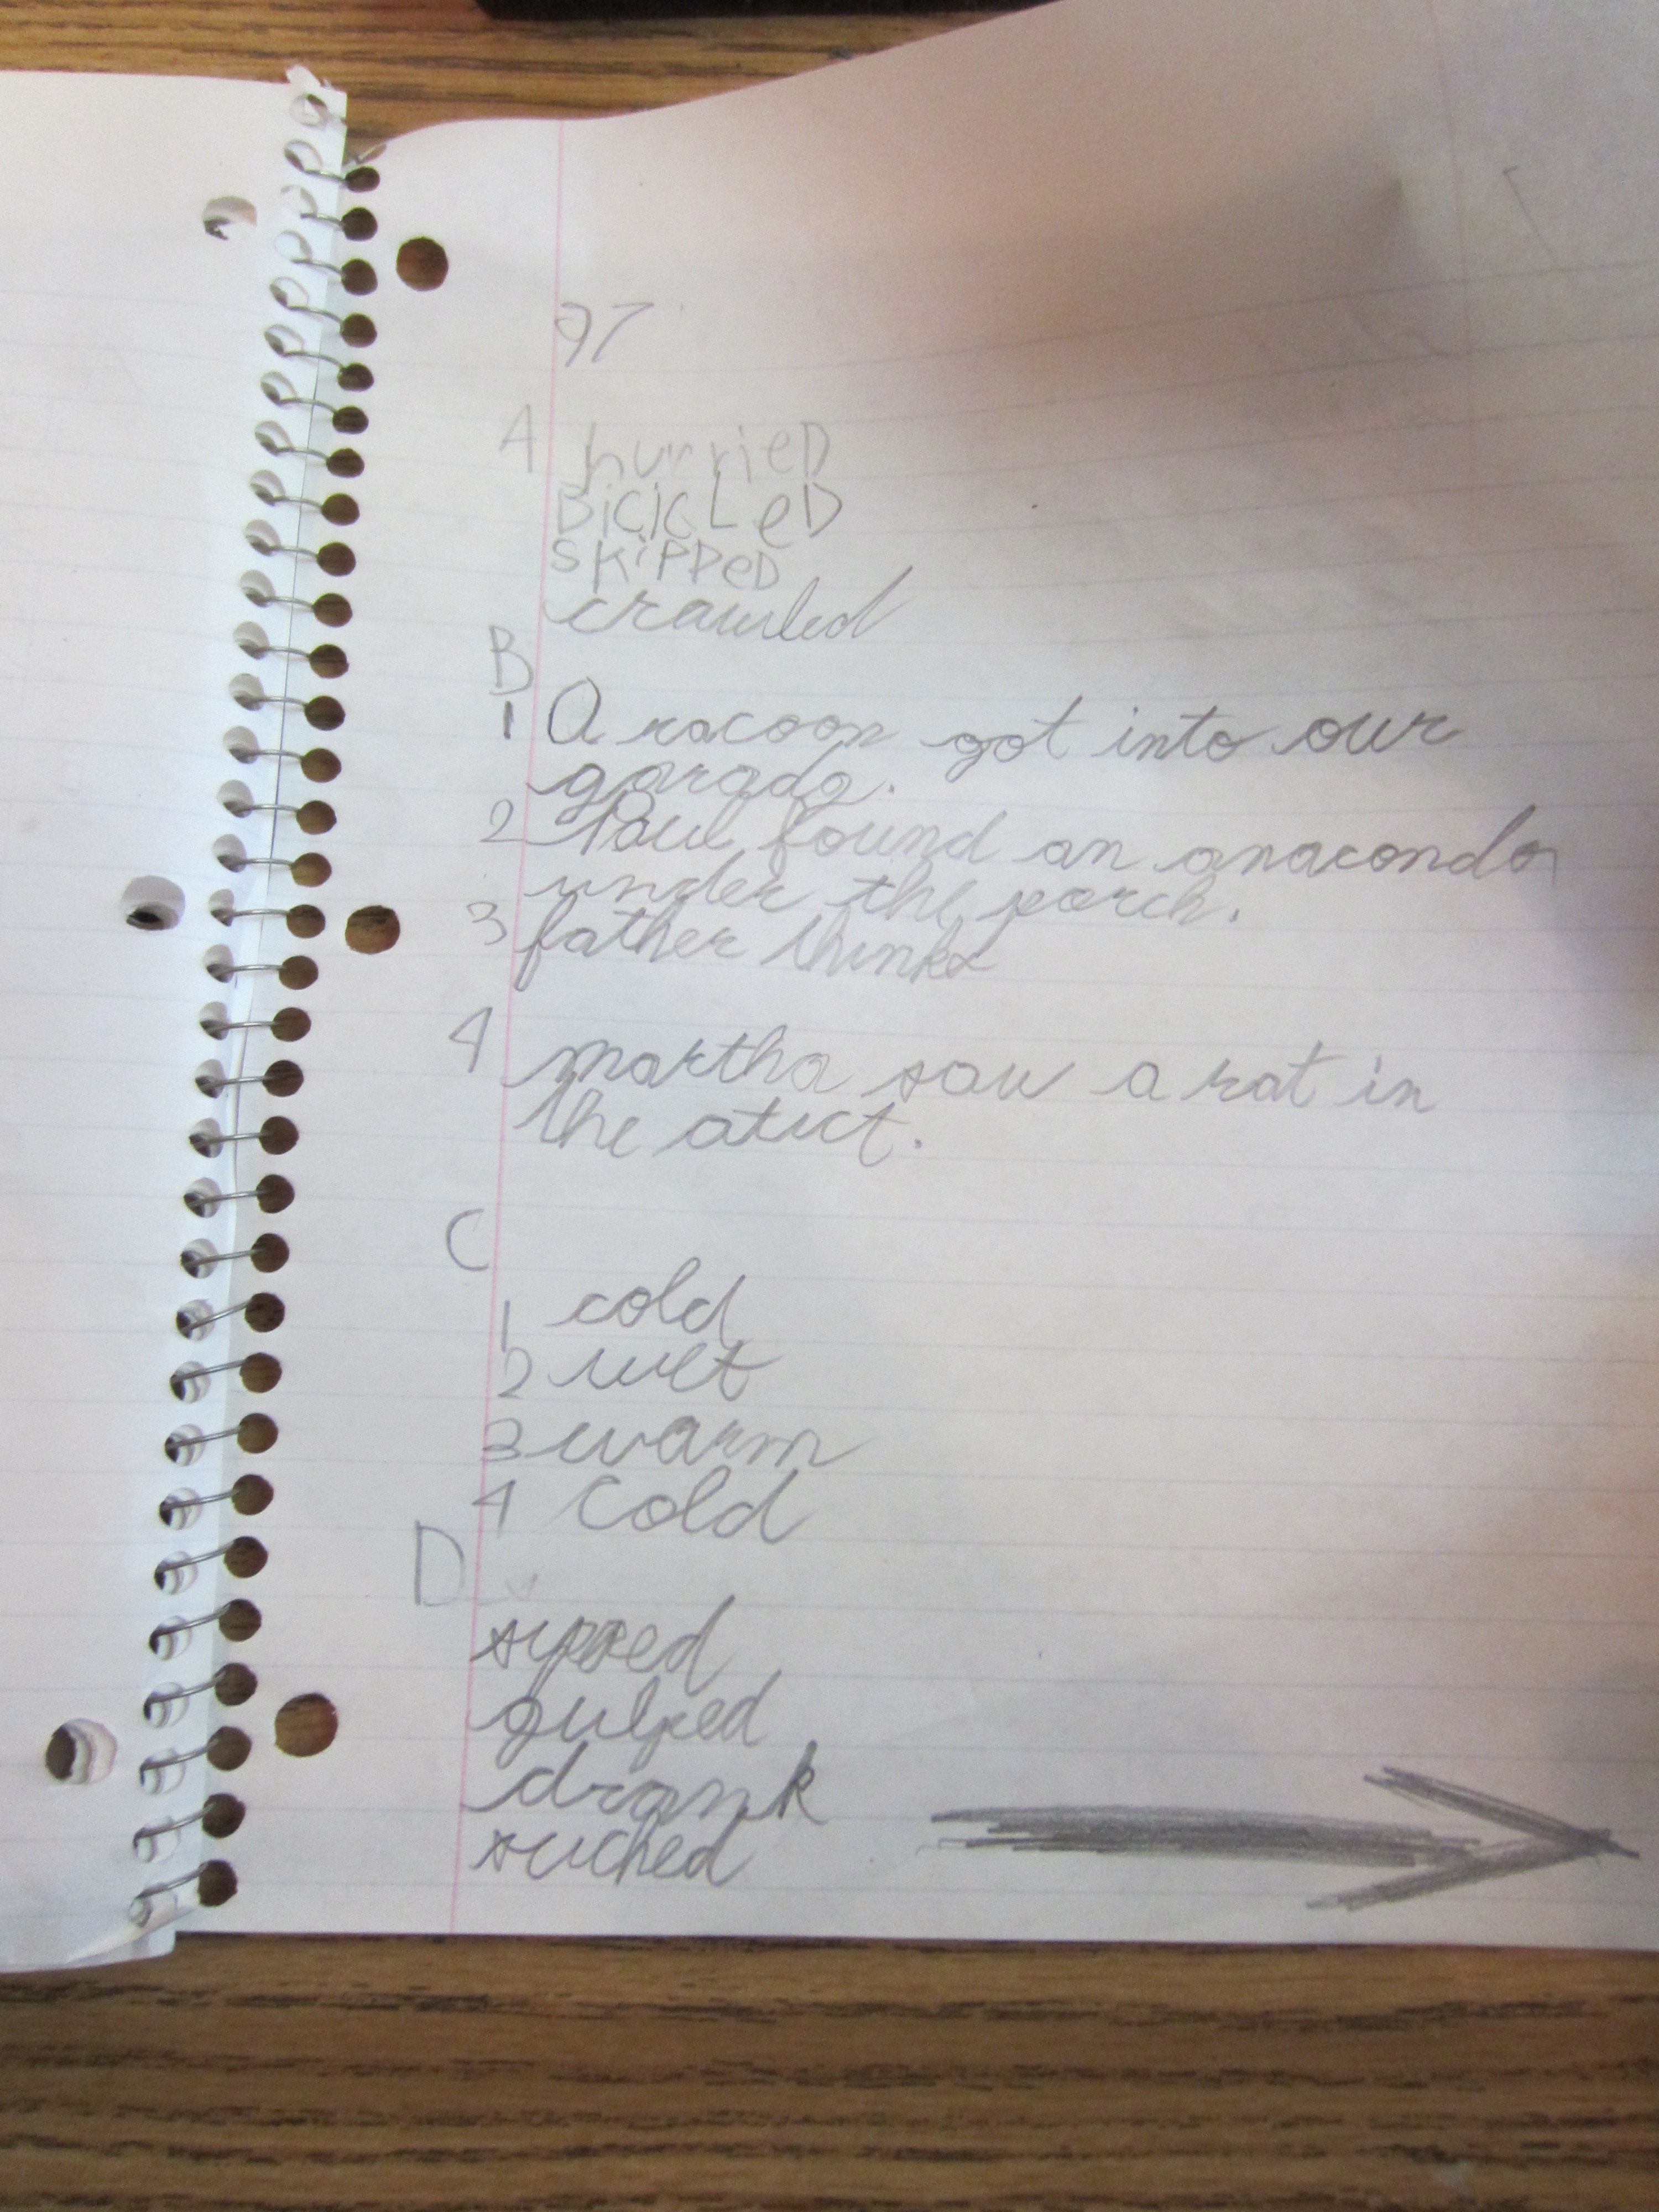 97
A hurrieD
BiCicLeD
skiPPeD
crawled
B
1 A racoon got into our
2 Paul found an anaconda
under the porch.
3 father thinks
4 martha saw a rat in
the
C
1 cold
2 wet
3 warm
4 Cold
D
sipped
gulped
drank
suched